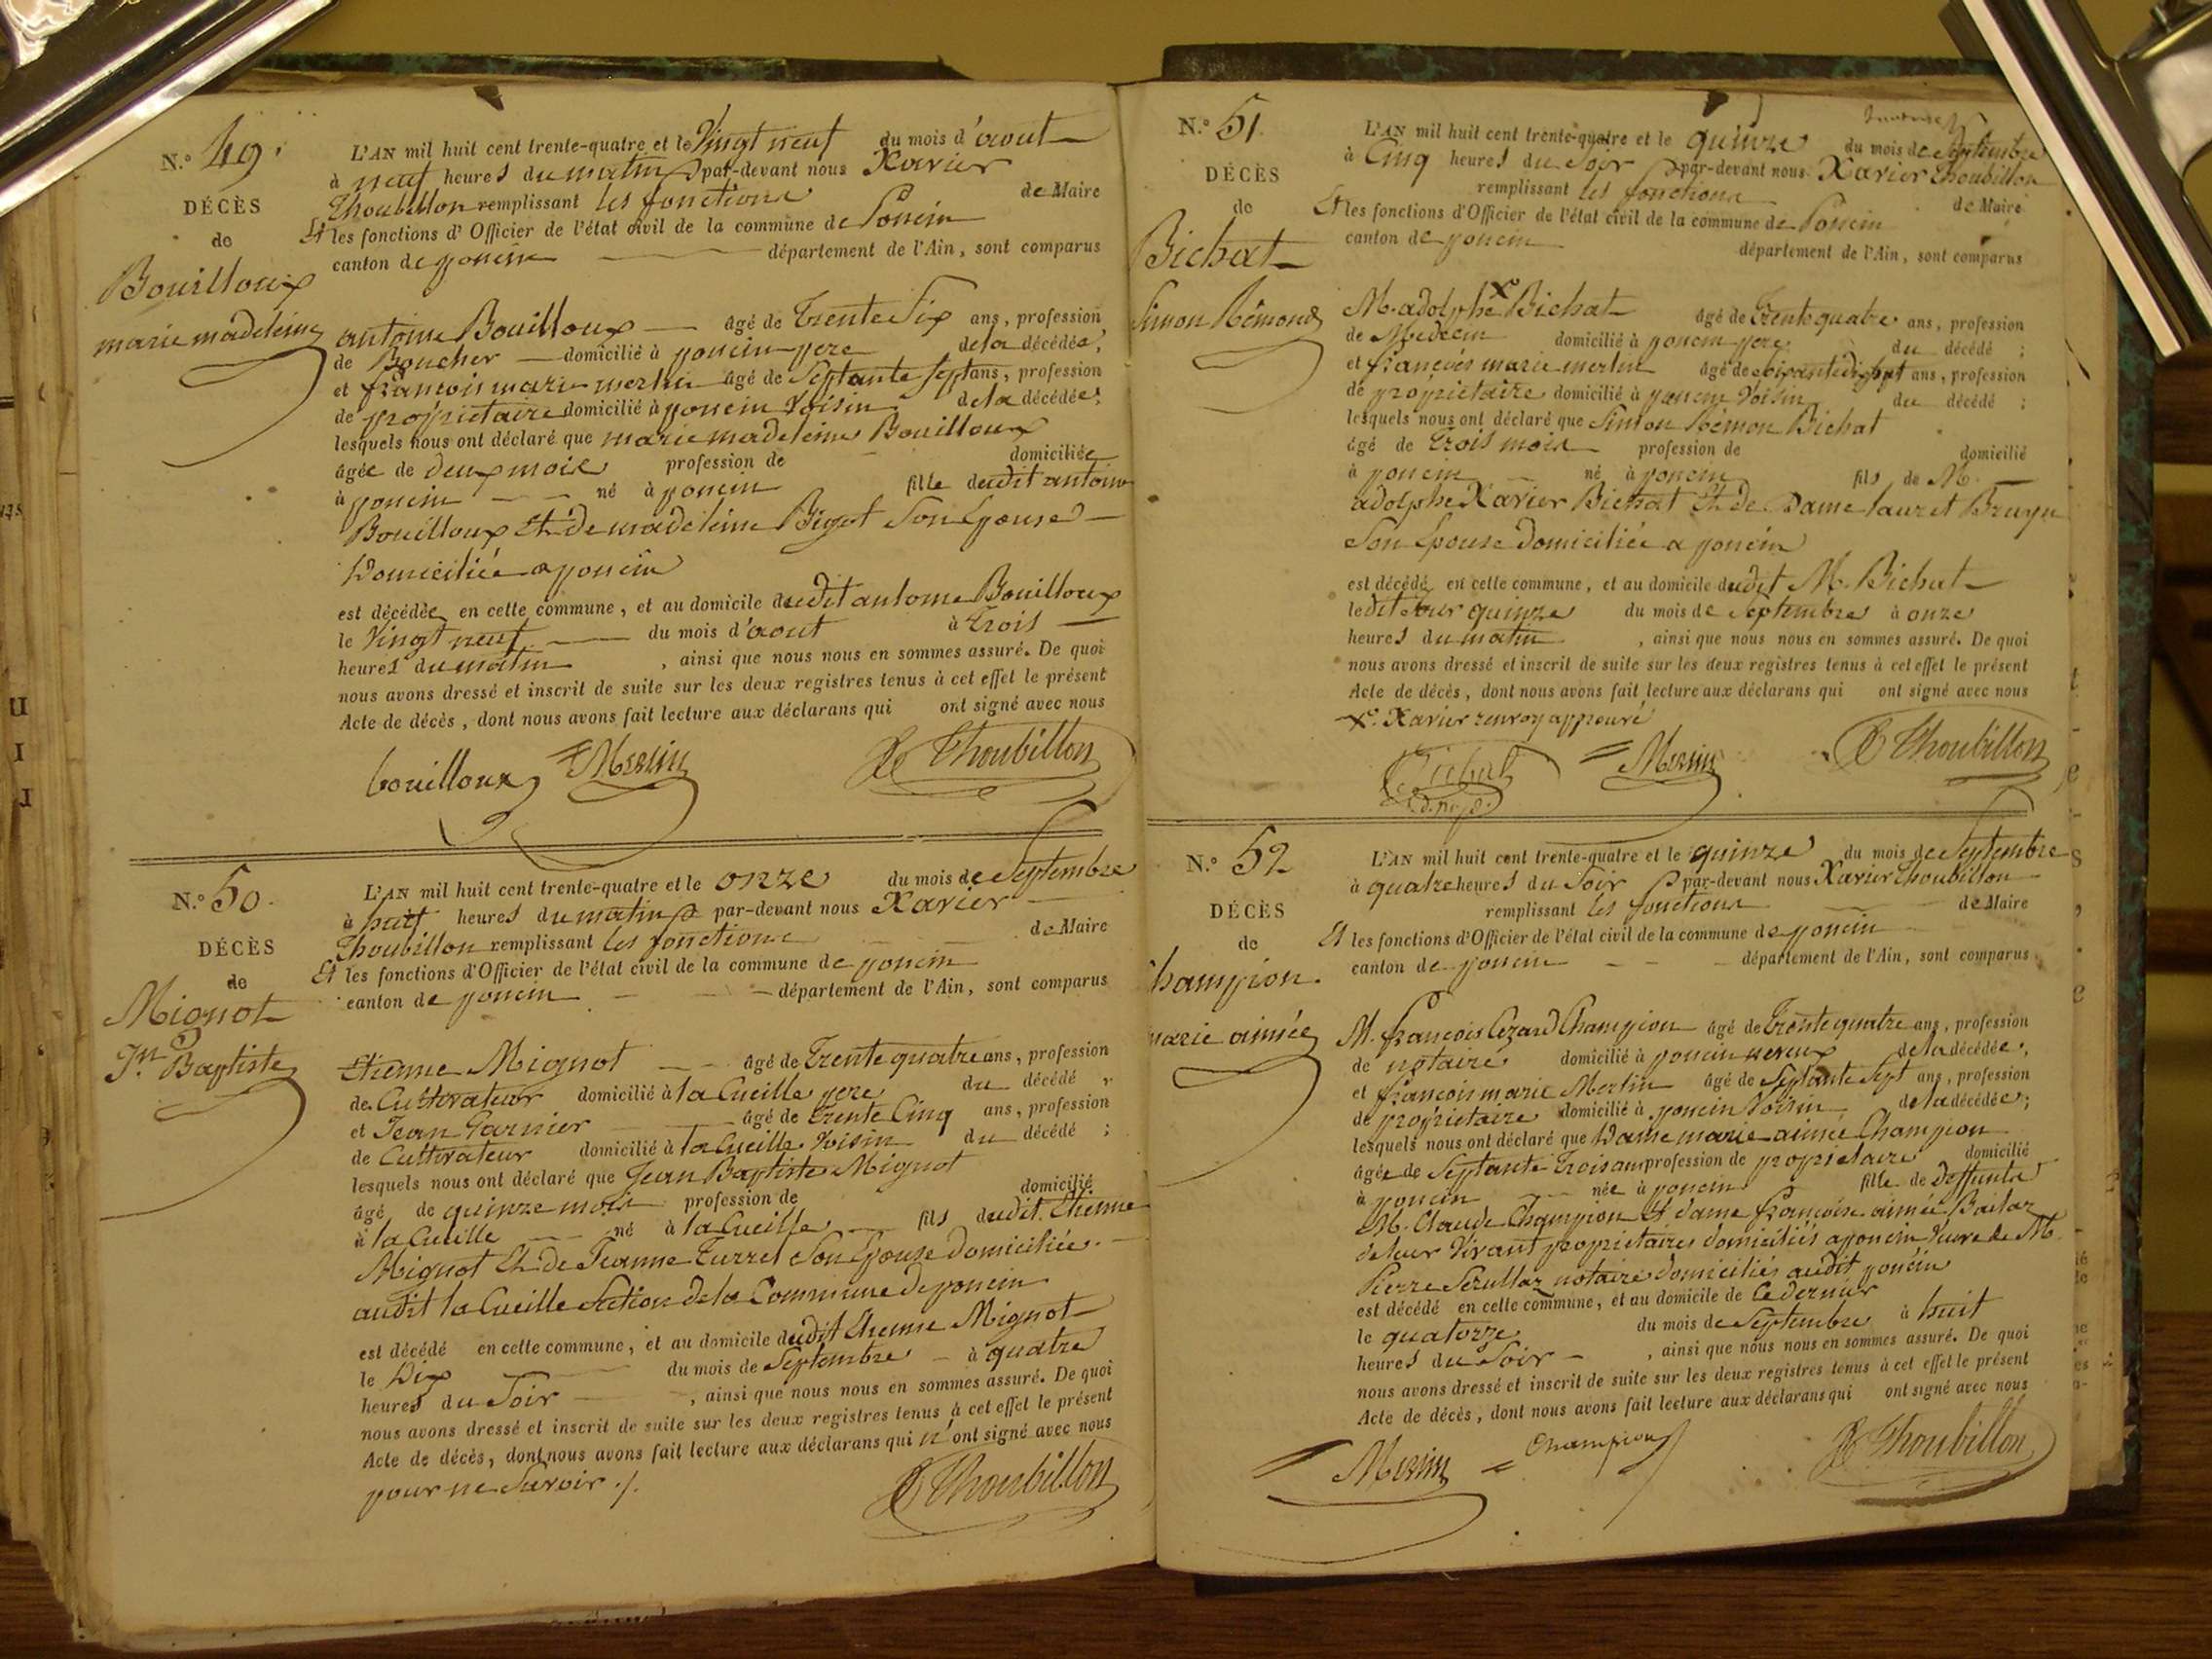 N.º 49.
DÉCÈS
de
Bouilloux
marie madeleine
L'AN mil huit cent trente-quatre et le Vingt neuf du mois d'aout
à neuf heures du matin par-devant nous Xavier
Thoubillon remplissant les fonctions de Maire
Et les fonctions d'Officier de l'état civil de la commune de Poncin
canton de poncin département de l'Ain, sont comparus
antoine Bouilloux âgé de Trente Six ans, profession
de Boucher domicilié à poncin pere de la décédée,
et francois marie merlin âgé de Septante sept ans, profession
de propriétaire domicilié à poncin Voisin de la décédée;
lesquels nous ont déclaré que marie madeleine Bouilloux
âgée de deux mois profession de domiciliée
à poncin né à poncin fille dudit antoine
Bouilloux Et de madeleine Bigot Son Epouse
Domiciliée a poncin
est décédée en cette commune, et au domicile dudit antoine Bouilloux
le Vingt neuf du mois d'aout à Trois
heures du matin, ainsi que nous nous en sommes assuré. De quoi
nous avons dressé et inscrit de suite sur les deux registres tenus à cet effet le présent
Acte de décès, dont nous avons fait lecture aux déclarans qui ont signé avec nous
bouilloux Merlin X Thoubillon
N.º 50.
DÉCÈS
de
Mignot
Jn. Baptiste
L'AN mil huit cent trente-quatre et le onze du mois de Septembre
à huit heures du matin par-devant nous Xavier
Thoubillon remplissant les fonctions de Maire
Et les fonctions d'Officier de l'état civil de la commune de poncin
canton de poncin département de l'Ain, sont comparus
Etienne Mignot âgé de Trente quatre ans, profession
de Cultivateur domicilié à la Cueille pere du décédé,
et Jean Garnier âgé de Trente Cinq ans, profession
de Cultivateur domicilié à la Cueille Voisin du décédé;
lesquels nous ont déclaré que Jean Baptiste Mignot
âgé de quinze mois profession de domicilié
à la Cueille né à la Cueille fils dudit Etienne
Mignot Et de Jeanne Turrel Son Epouse Domiciliée
audit la Cueille Section de la Commune de poncin
est décédé en cette commune, et au domicile dudit Etienne Mignot
le Dix du mois de Septembre à quatre
heures du Soir, ainsi que nous nous en sommes assuré. De quoi
nous avons dressé et inscrit de suite sur les deux registres tenus à cet effet le présent
Acte de décès, dont nous avons fait lecture aux déclarans qui n'ont signé avec nous
pour ne Savoir ./.
X Thoubillon
N.º 51.
DÉCÈS
de
Bichat
Simon Rémond
L'AN mil huit cent trente-quatre et le quinze du mois de Septembre
à Cinq heures du Soir par-devant nous Xavier Thoubillon
remplissant les fonctions de Maire
Et les fonctions d'Officier de l'état civil de la commune de Poncin
canton de poncin département de l'Ain, sont comparus
M. adolphe X Bichat âgé de Trente quatre ans, profession
de Medecin domicilié à poncin pere du décédé;
et françois marie merlin âgé de ans, profession
de propriétaire domicilié à poncin Voisin du décédé;
lesquels nous ont déclaré que Simon Rémon Bichat
âgé de Trois mois profession de domicilié
à poncin né à poncin fils de M.
adolphe Xavier Bichat Et de Dame Bruyn
Son Epouse Domiciliée a poncin
est décédé en cette commune, et au domicile dudit M. Bichat
ledit Jour quinze du mois de Septembre à onze
heures du matin, ainsi que nous nous en sommes assuré. De quoi
nous avons dressé et inscrit de suite sur les deux registres tenus à cet effet le présent
Acte de décès, dont nous avons fait lecture aux déclarans qui ont signé avec nous
X. Xavier renvoy approuvé
Bichat Merlin X Thoubillon
N.º 52
DÉCÈS
de
hampion.
marie aimée
L'AN mil huit cent trente-quatre et le quinze du mois de Septembre
à quatre heures du Soir par-devant nous Xavier Thoubillon
remplissant les fonctions de Maire
Et les fonctions d'Officier de l'état civil de la commune de poncin
canton de poncin département de l'Ain, sont comparus
M. françois Cezard Champion âgé de Trente quatre ans, profession
de notaire domicilié à poncin neveux de la décédée,
et francois marie Merlin âgé de Septante Sept ans, profession
de propriétaire domicilié à poncin Voisin de la décédée;
lesquels nous ont déclaré que Dame marie aimée Champion
âgée de Septante Trois ans profession de propriétaire domicilié
à poncin née à poncin fille de Deffunts
M. Claude Champion Et dame françoise aimée Bailaz
de leur Vivant propriétaires domiciliés a poncin Veuve de M.
Pierre notaire Domiciliés audit poncin
est décédé en cette commune, et au domicile de Ce dernier
le quatorze du mois de Septembre à huit
heures du Soir, ainsi que nous nous en sommes assuré. De quoi
nous avons dressé et inscrit de suite sur les deux registres tenus à cet effet le présent
Acte de décès, dont nous avons fait lecture aux déclarans qui ont signé avec nous
Merlin Champion X Thoubillon